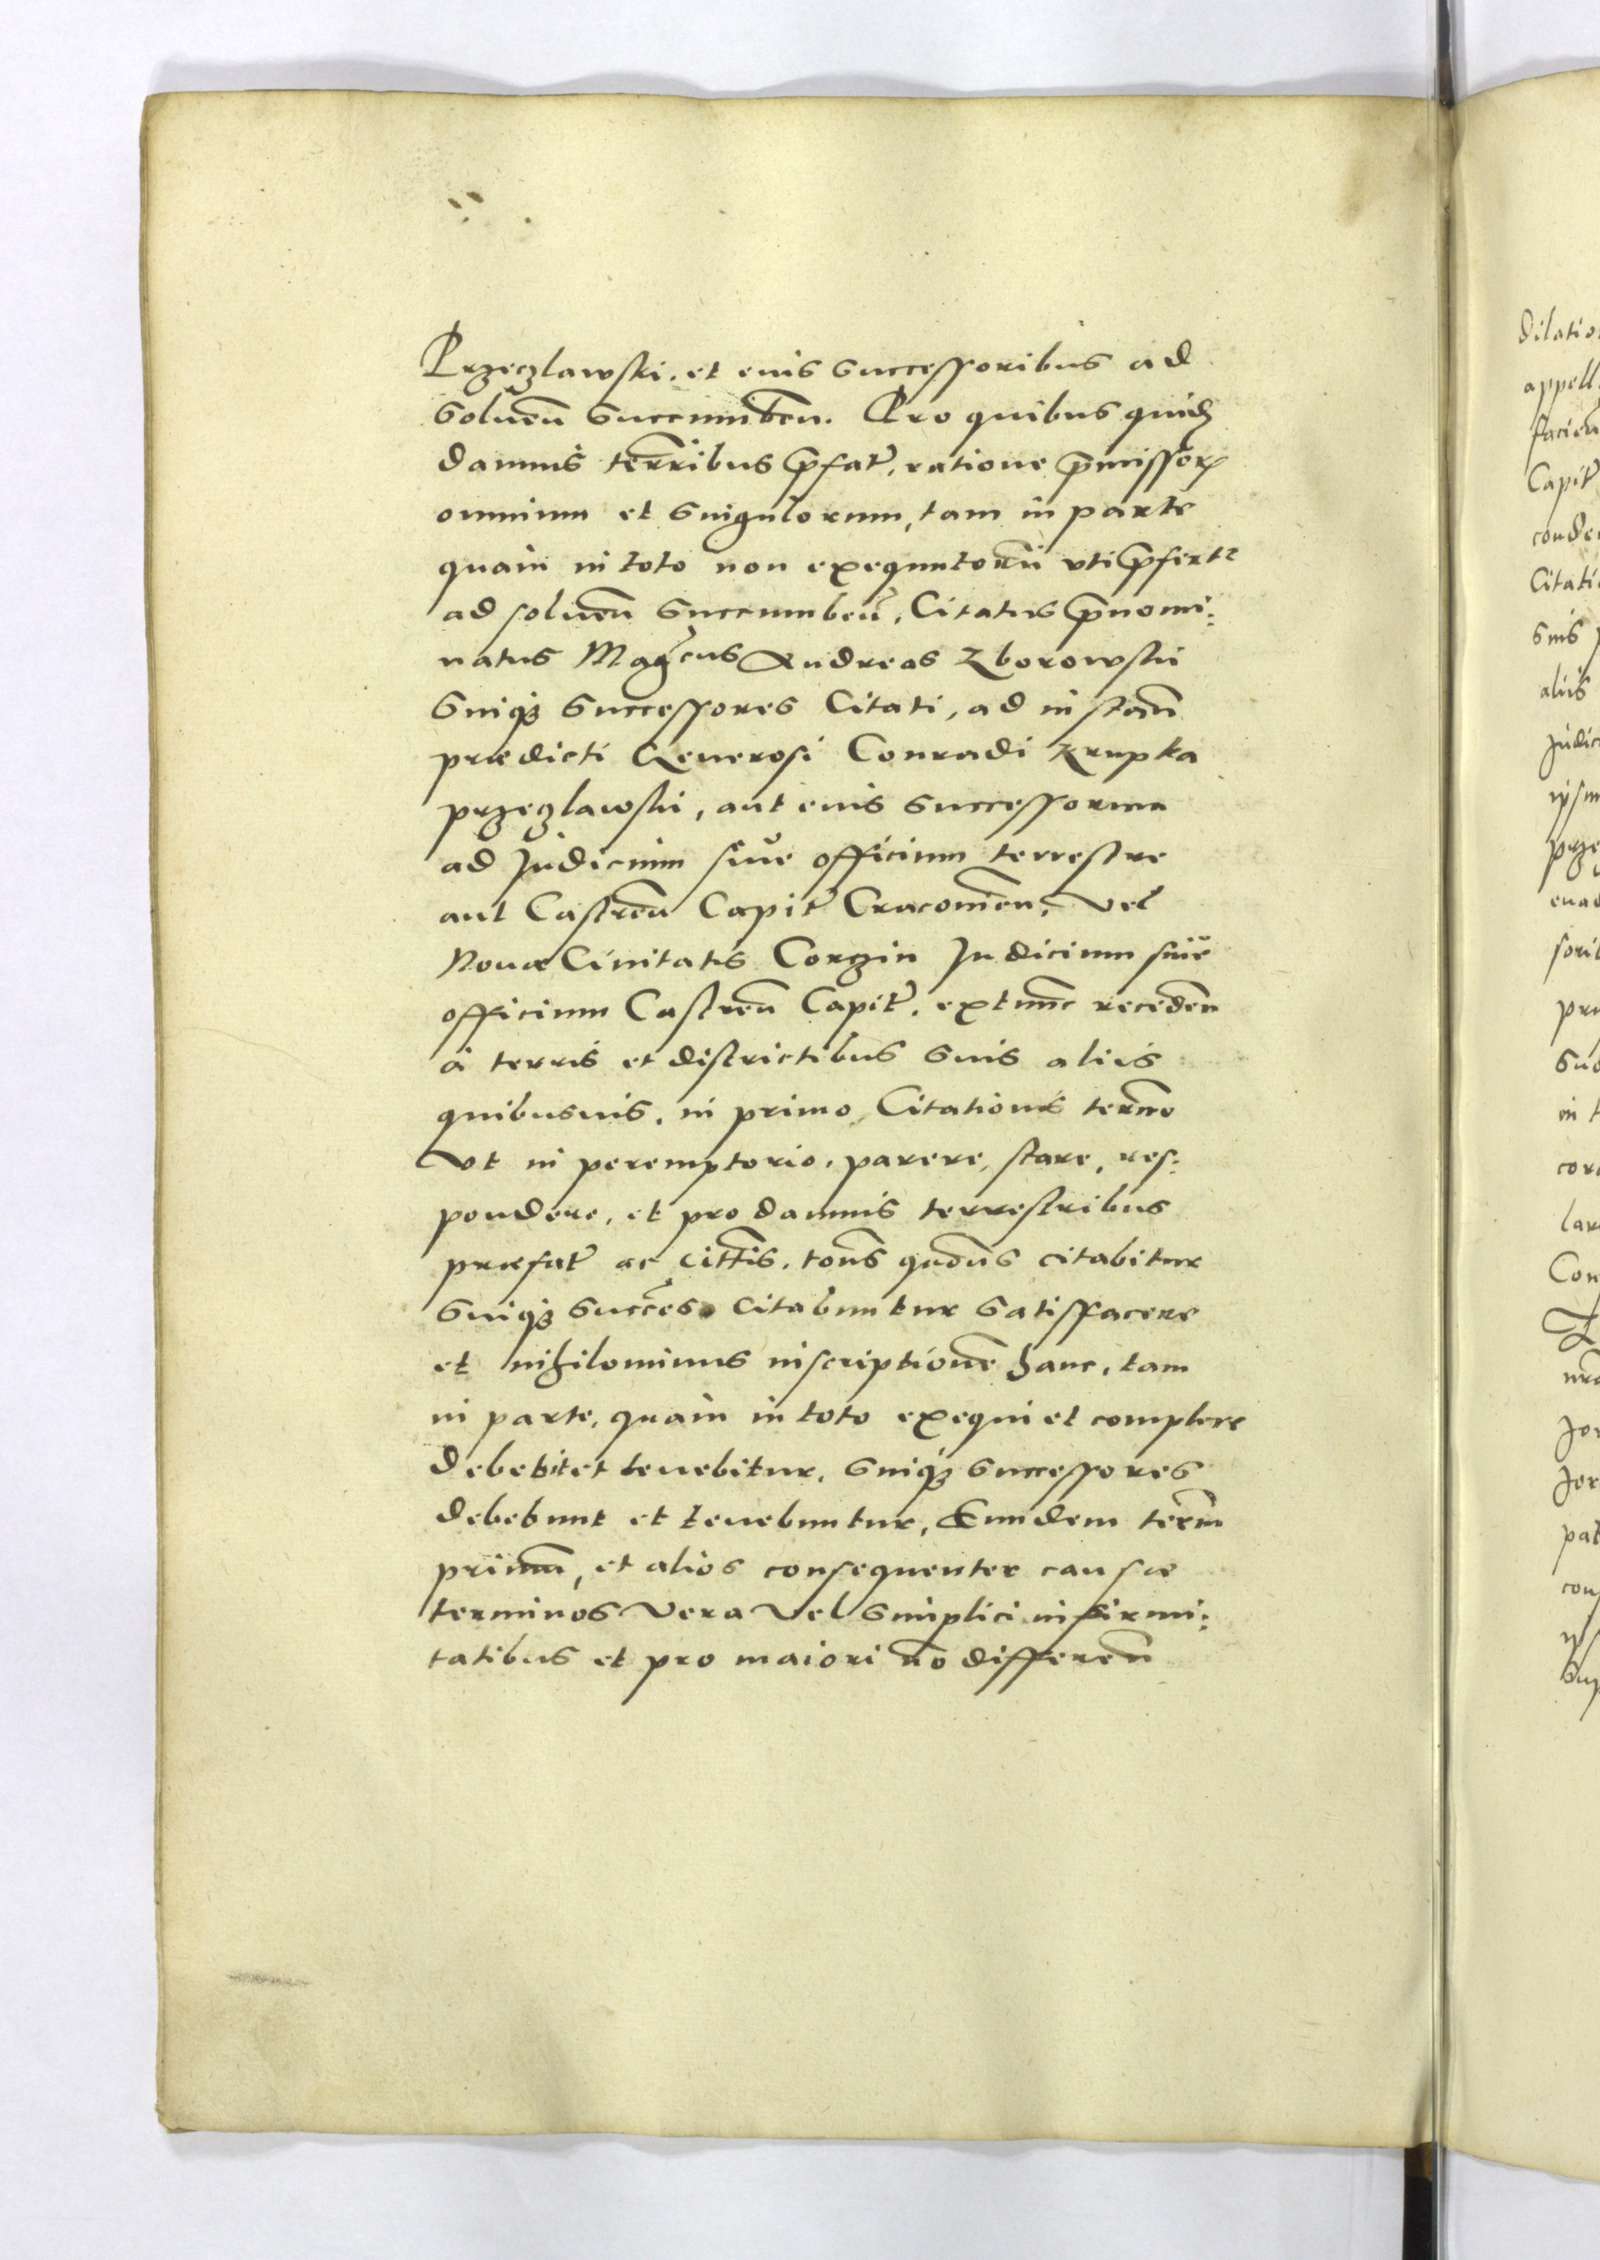 Przeczlawski. et eius Successoribus ad
Soluen̄ Succumben̄. Pro quibus quidẽ
damnis terr̃ribus p̃fat̃. ratione p̃missorꝝ
omnium et Singulorum, tam in parte
quam in toto non exequutorũ uti p̃fertr
ad soluen̄ Succumben̄. Citatus p̃nomi:
natus Mag̃cus Andreas Zborowski
Suiqꝫ Successores Citati, ad instan̄
prædicti Generosi Conradi Krupka
przeczlawski, aut eius Successorum
ad Judicium siue officium terrestre
aut Castren̄ Capit̃ Cracouien̄, vel
Nouæ Ciuitatis Corzin Judicium siue
officium Castren̄ Capit̃. extunc receden̄
à terris et districtibus Suis aliis
quibusuis. in primo Citationis term̃o
Vt in peremptorio. parere, stare, res:
pondere, et pro damnis terrestribus
præfat̃ ac citt̃is. totĩs quotĩs citabitur
Suiqꝫ Success̃es Citabuntur Satisfacere
et nihilominus inscriptionẽ hanc, tam
in parte, quàm in toto exequi et complere
debebit et tenebitur. Suiqꝫ Successores
debebunt et tenebuntur. Eundem term̃
primũ, et alios consequenter causæ
terminos Vera Vel Simplici infirmi:
tatibus et pro maiori nõ differen̄
dilatio
appell
facien
Capit̃
conde
Citati
Suis
aliis
Judic
ipsu
prze
euad
soril
pri
Suo
in t
cor
lar
Con
Jor
Jor
pat
con
Sup